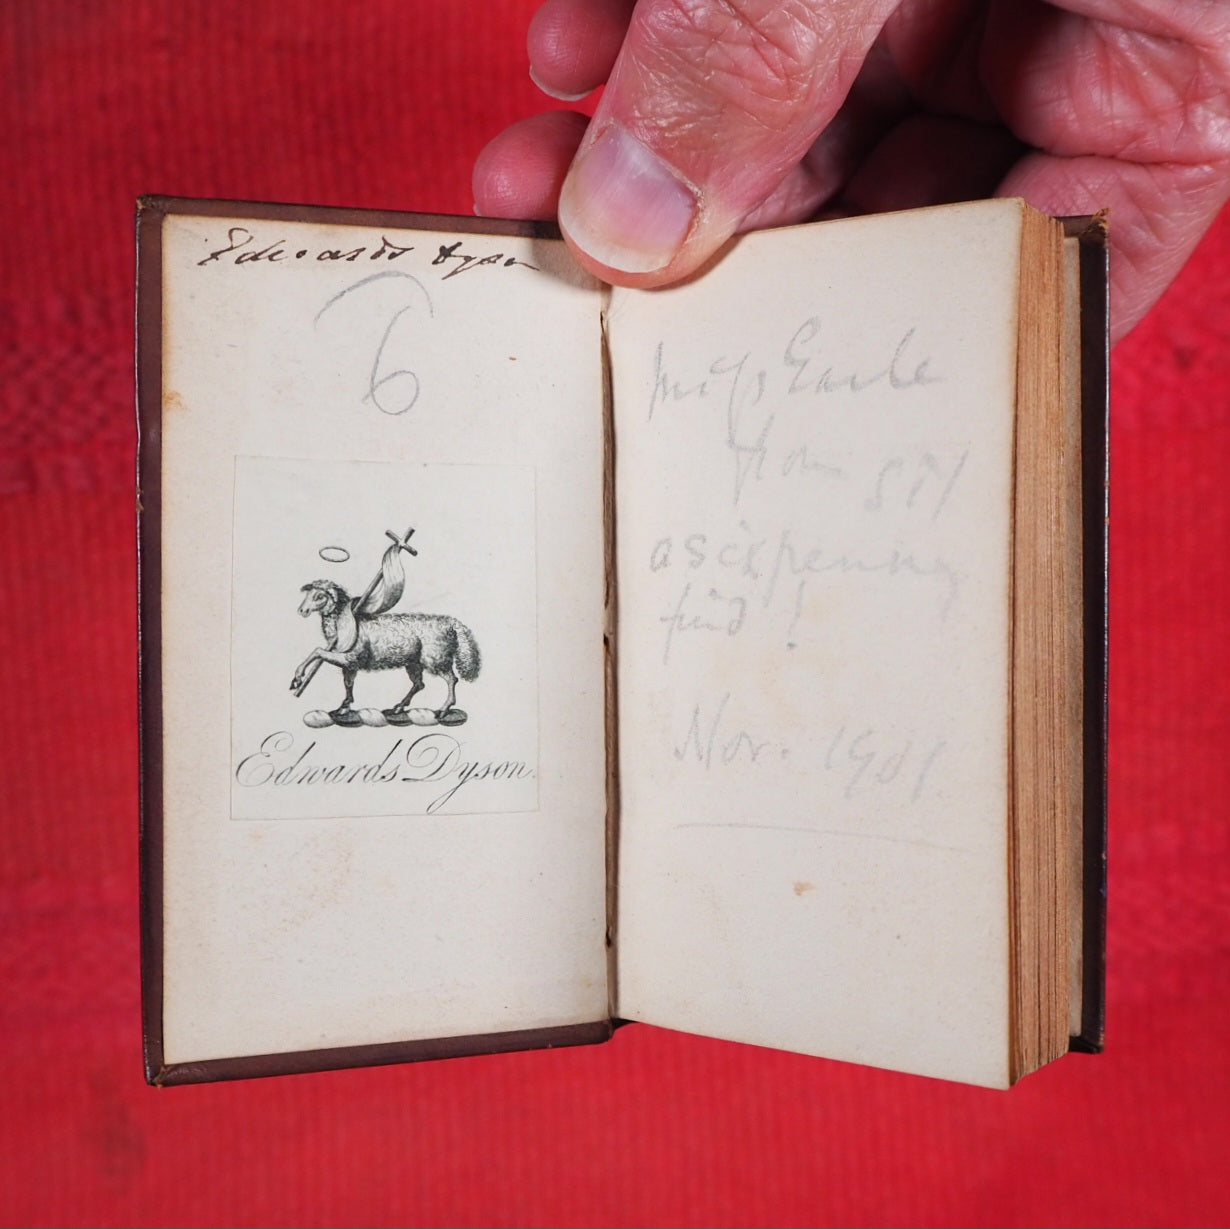 Edwards Dyson
6
Edwards Dyson.
Miss Earle
from
a sixpenny
find!
Nov. 1901.